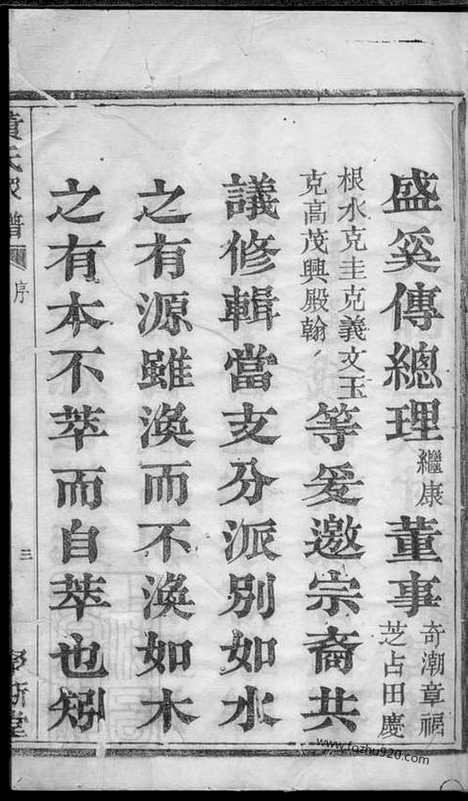 盛奚傳總理
繼康
董事
奇潮章
芝占田慶
根水克圭克義文玉
克高茂興殿翰
等爰邀宗裔共
議修輯當支分派別如水
之有源雖渙而不渙如木
之有本不萃而自萃也矧
黃氏 譜
序
三
堂
www.fozhu920.com